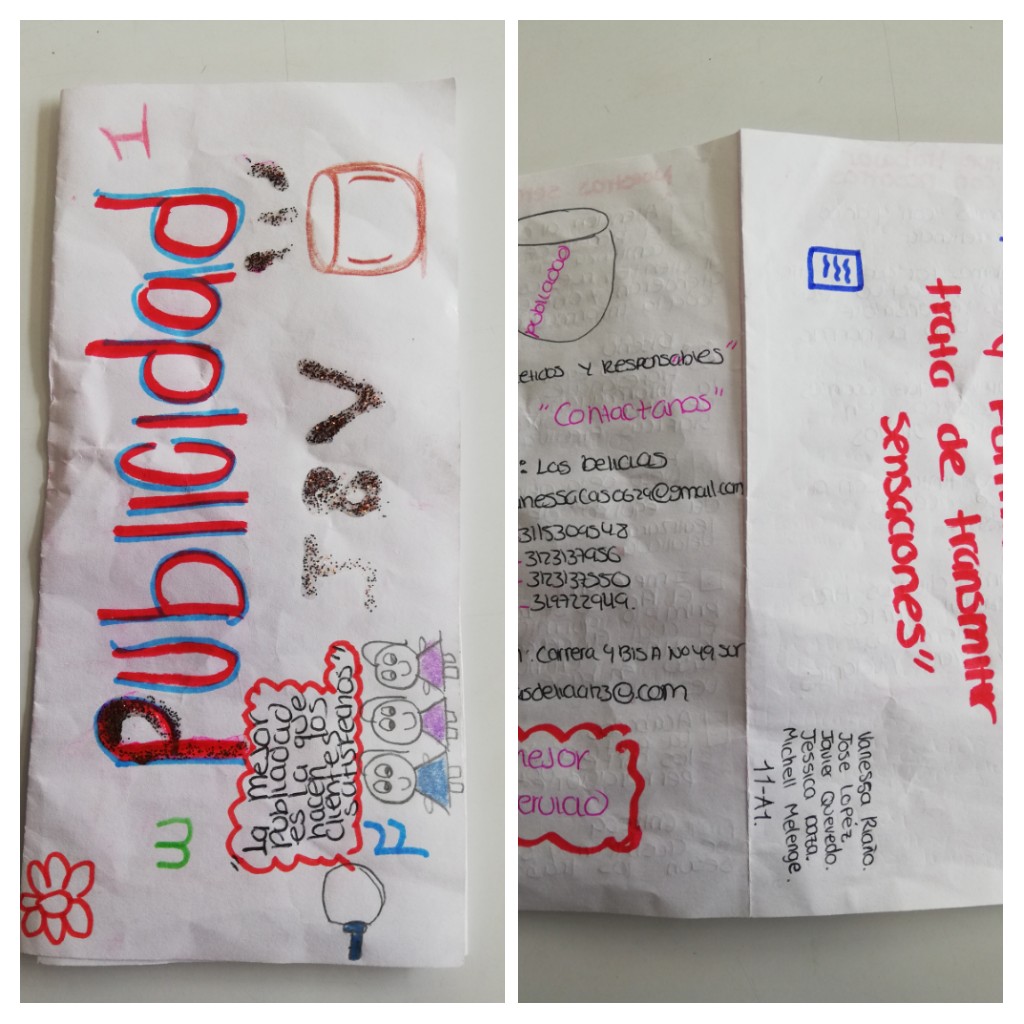 Publicidad
I
J&V
"La mejor
publicidad
es la que
hacen los
clientes
satisfechos"
E
F
Publicidad
y Responsables"
"Contactanos"
: Las Delicias
nessacasc629@gmail.com
3115309548
- 3123137956
- 3123137550
- 3197722949.
: Carrera 4 BIS A No 49 sur
sdeliciah3@.com
mejor
servicio
y
trata de transmitir
sensaciones"
Vanessa Riaño.
Jose Lopéz
Javier Quevedo.
Jessica Daza.
Michell Melenge.
11-A1.